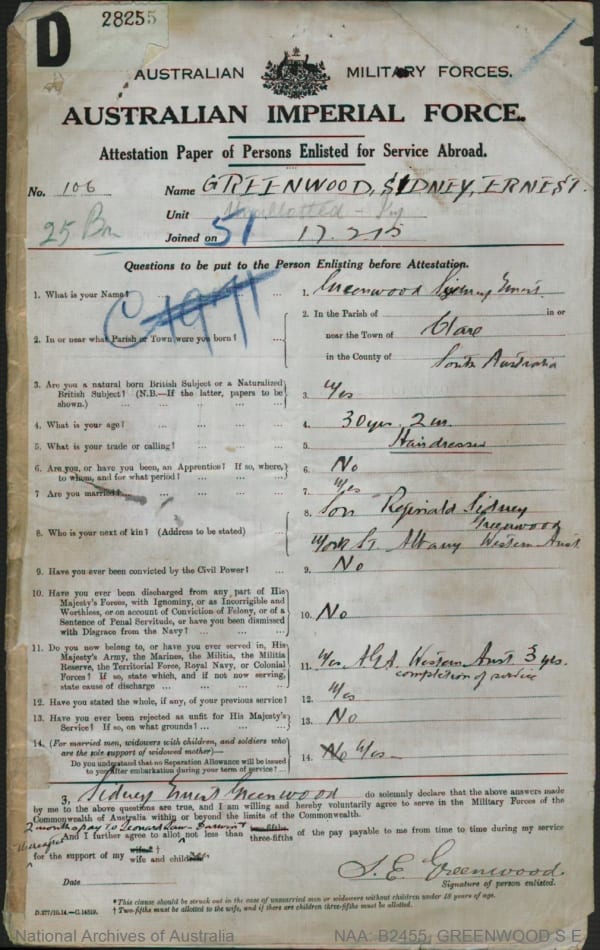 D
28255
AUSTRALIAN MILITARY FORCES.
AUSTRALIAN IMPERIAL FORCE.
Attestation Paper of Persons Enlisted for Service Abroad.
No. 106 Name GREENWOOD, SIDNEY, ERNEST.
Unit Unallotted
25 Bn Joined on 17.2.15
51
Questions to be put to the Person Enlisting before Attestation.
1. What is your Name? ... 1. Greenwood Sidney Ernest.
2. In or near what Parish or Town were you born? ... 2. In the Parish of in or
near the Town of Clare
in the County of South Australia
3. Are you a natural born British Subject or a Naturalized
British Subject? (N.B.—If the latter, papers to be
shown.) ... 3. Yes
4. What is your age? ... 4. 30 yrs. 2 m.
5. What is your trade or calling? ... 5. Hairdresser
6. Are you, or have you been, an Apprentice? If so, where,
to whom, and for what period? ... 6. No
7 Are you married? ... 7. Yes
8. Who is your next of kin? (Address to be stated) ... 8. Son Reginald Sidney
Greenwood
York St Albany Western Aust
9. Have you ever been convicted by the Civil Power? ... 9. No
10. Have you ever been discharged from any part of His
Majesty's Forces, with Ignominy, or as Incorrigible and
Worthless, or on account of Conviction of Felony, or of a
Sentence of Penal Servitude, or have you been dismissed
with Disgrace from the Navy? ... 10. No
11. Do you now belong to, or have you ever served in, His
Majesty's Army, the Marines, the Militia, the Militia
Reserve, the Territorial Force, Royal Navy, or Colonial
Forces? If so, state which, and if not now serving,
state cause of discharge ... 11. Yes AGA. Western Aust 3 yrs.
completion of service
12. Have you stated the whole, if any, of your previous service? 12. Yes
13. Have you ever been rejected as unfit for His Majesty's
Service? If so, on what grounds? ... 13. No
14. (For married men, widowers with children, and soldiers who
are the sole support of widowed mother)—
Do you understand that no Separation Allowance will be issued
to you after embarkation during your term of service? ... 14. No Yes
I, Sidney Ernest Greenwood do solemnly declare that the above answers made
by me to the above questions are true, and I am willing and hereby voluntarily agree to serve in the Military Forces of the
Commonwealth of Australia within or beyond the limits of the Commonwealth.
2 months pay to
And I further agree to allot not less than two-fifths three-fifths of the pay payable to me from time to time during my service
for the support of my wife† wife and children
Date
S. E. Greenwood
Signature of person enlisted.
* This clause should be struck out in the case of unmarried men or widowers without children under 18 years of age.
† Two-fifths must be allotted to the wife, and if there are children three-fifths must be allotted.
D.277/10.14.—C.14819.
National Archives of Australia NAA: B2455, GREENWOOD S E